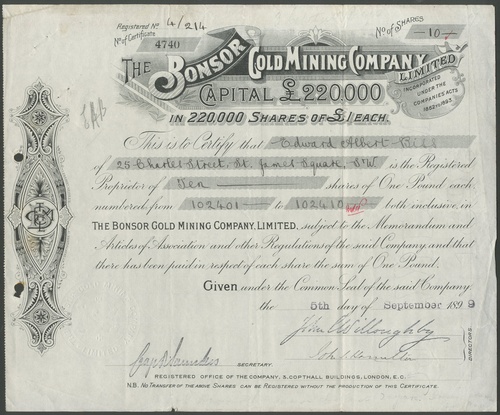 Registered No 4/214
No of Certificate 4740
No of SHARES -10-
THE BONSOR GOLD MINING COMPANY LIMITED
INCORPORATED
UNDER THE
COMPANIES ACTS
1862 TO 1893.
CAPITAL £220,000
IN 220,000 SHARES OF £1 EACH.
This is to Certify that Edward Albert
of 25 Charles Street, St. James Square, S.W. is the Registered
Proprietor of Ten shares of One Pound each
numbered from 102401 to 102410 both inclusive, in
THE BONSOR GOLD MINING COMPANY, LIMITED, subject to the Memorandum and
Articles of Association and other Regulations of the said Company, and that
there has been paid in respect of each share the sum of One Pound.
Given under the Common Seal of the said Company
the 5th day of September 1899
John C Willoughby
John S Hamilton
DIRECTORS.
SECRETARY.
REGISTERED OFFICE OF THE COMPANY, 3, COPTHALL BUILDINGS, LONDON, E.C.
N.B. NO TRANSFER OF THE ABOVE SHARES CAN BE REGISTERED WITHOUT THE PRODUCTION OF THIS CERTIFICATE.